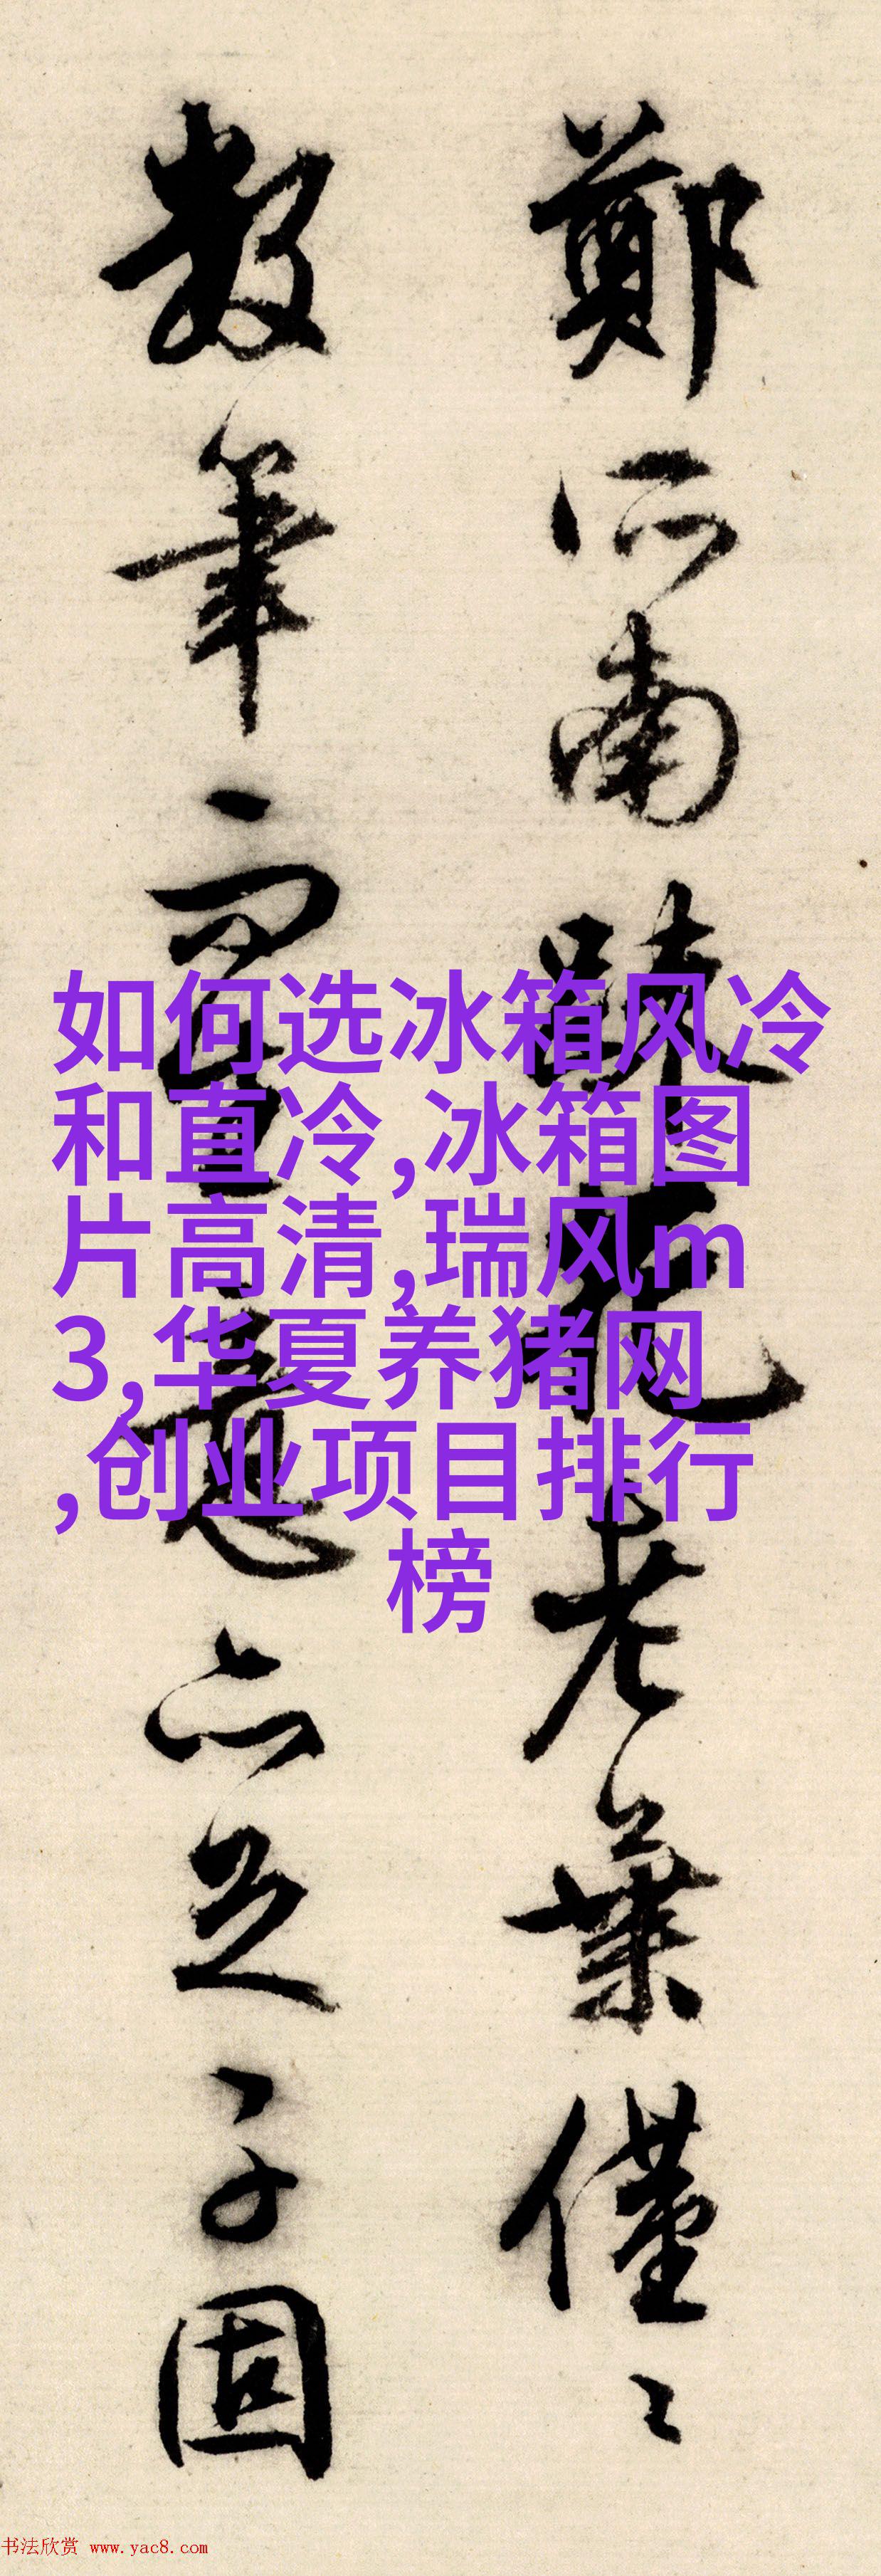 鄭所南疎花老葉僅々
數筆而生意亦足子固
如何选冰箱风冷
和直冷,冰箱图
片高清,瑞风m
3,华夏养猪网
,创业项目排行
榜
书法欣赏 www.yac8.com